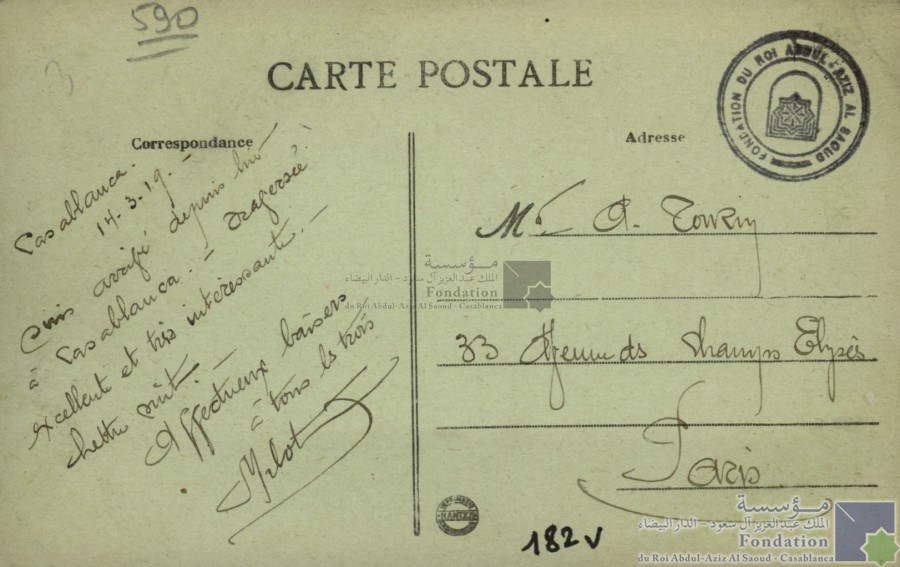 590
3
CARTE POSTALE
FONDATION DU ROI ABDUL-AZIZ AL SAOUD
Correspondance
Casablanca.
14.3.19.
Suis arrivé depuis hier
à Casablanca. – Traversée
excellente et très intéressante. –
lettre suit. –
Affectueux baisers
à tous les trois
Adresse
Mr A.
33 Avenue des Champs Elysés
Paris
مؤسسة
الملك عبدالعزيز آل سعود - الدار البيضاء
Fondation
du Roi Abdul-Aziz Al Saoud - Casablanca
NANTES
182 v
مؤسسة
الملك عبدالعزيز آل سعود - الدار البيضاء
Fondation
du Roi Abdul-Aziz Al Saoud - Casablanca